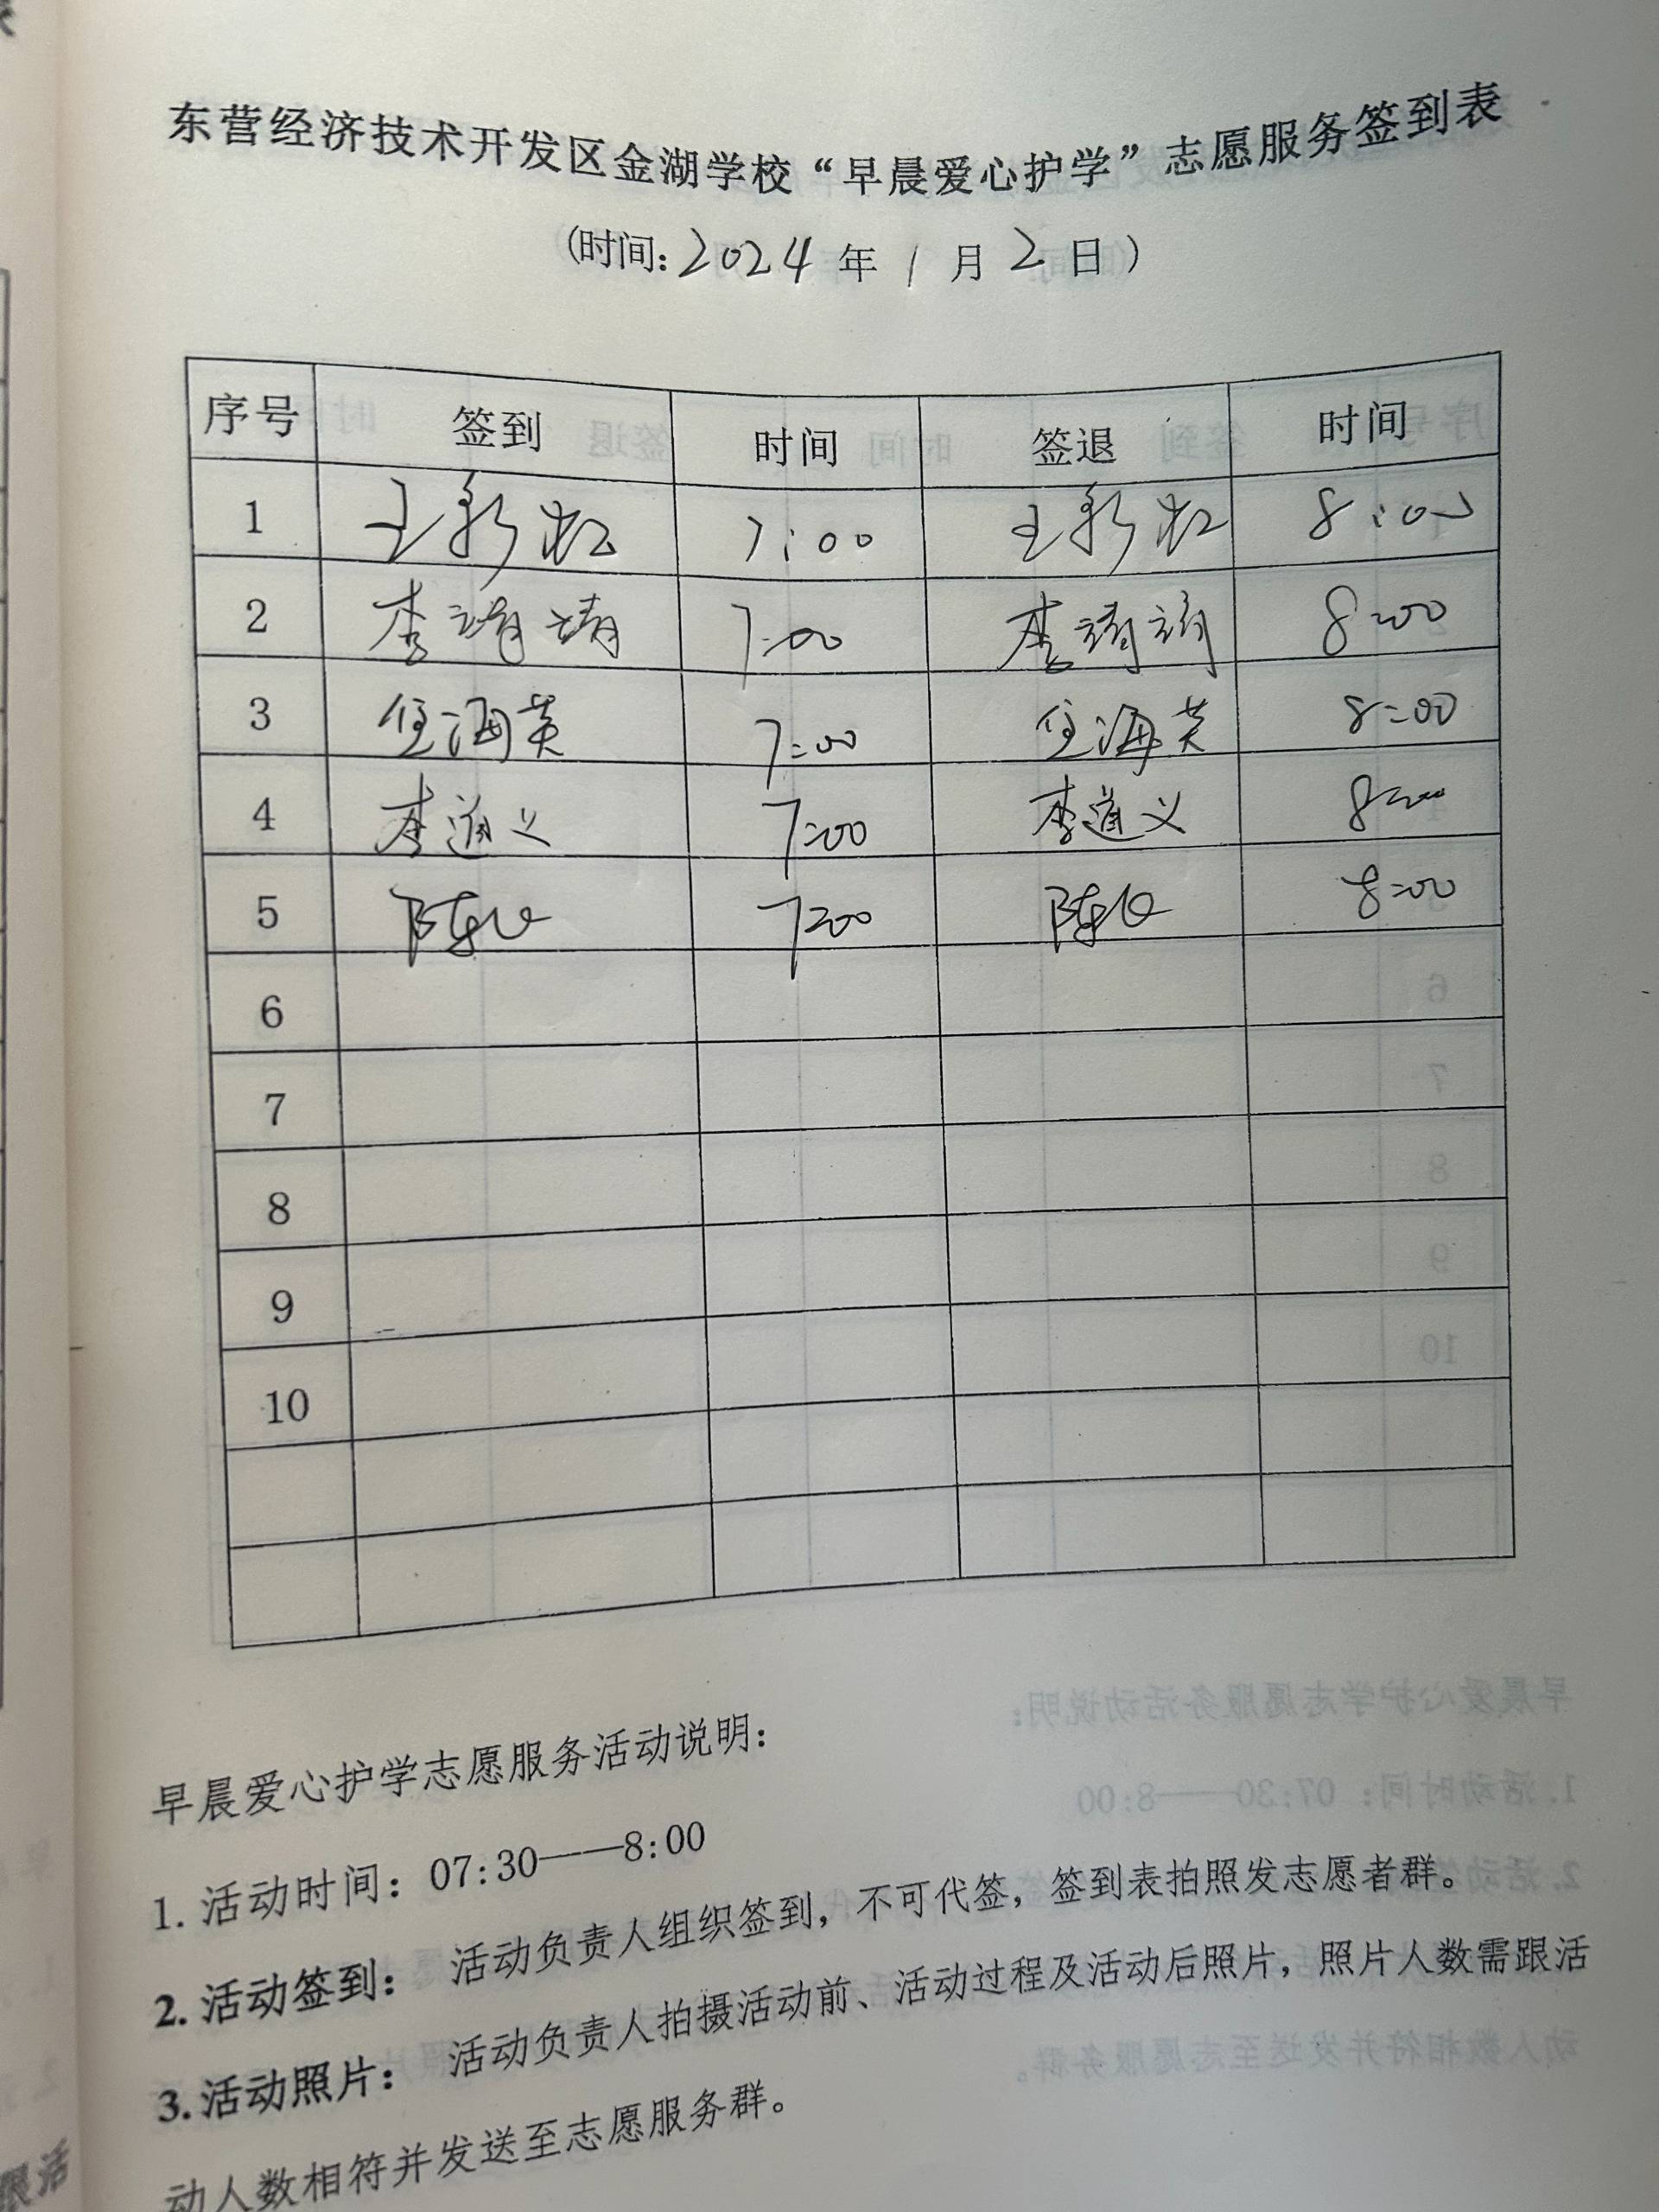 东营经济技术开发区金湖学校“早晨爱心护学”志愿服务签到表
(时间:2024年1月2日)
序号 签到 时间 签退 时间
1 王彩虹 7:00 王彩虹 8:00
2 李靖靖 7:00 李靖靖 8:00
3 任海英 7:00 任海英 8:00
4 李道义 7:00 李道义 8:00
5 陈 7:00 陈 8:00
6
7
8
9
10
早晨爱心护学志愿服务活动说明:
1. 活动时间: 07:30——8:00
2. 活动签到: 活动负责人组织签到，不可代签，签到表拍照发志愿者群。
3. 活动照片: 活动负责人拍摄活动前、活动过程及活动后照片，照片人数需跟活
动人数相符并发送至志愿服务群。
跟活